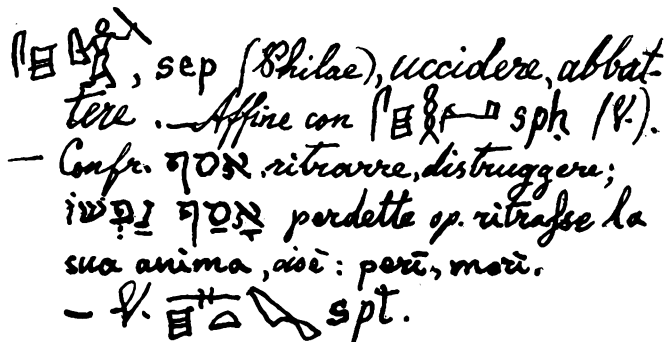 , sep (Philae), uccidere, abbat-
tere. — Affine con sph. (V.).
— Confr. אסף ritrarre, distruggere;
אָסַף נַפְשׁוֹ perdette op. ritrasse la
sua anima, cioè: perì, morì.
— V. spt.